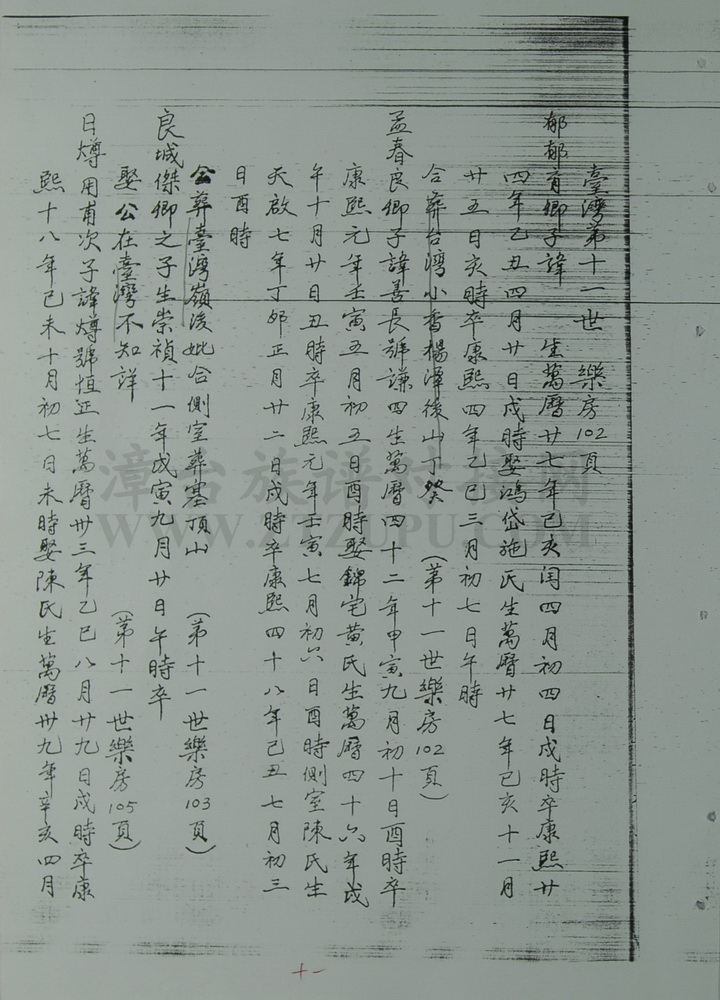 臺灣第十一世　樂房102頁
郁郁育卿子諱　生萬曆廿七年己亥閏四月初四日戍時卒康熙廿
四年乙丑四月廿日戍時娶鴻岱施氏生萬曆廿七年己亥十一月
廿五日亥時卒康熙四年乙巳三月初七日午時
合葬台湾小香楊潭後山丁癸　(第十一世樂房102頁)
孟春良卿子諱善長號謙四生萬曆四十二年甲寅九月初十日酉時卒
康熙元年壬寅五月初五日酉時娶錦宅黄氏生萬曆四十六年戍
午十月廿日丑時卒康熙元年壬寅七月初六日酉時側室陳氏生
天啟七年丁卯正月廿二日戍時卒康熙四十八年己丑七月初三
日酉時
合葬臺灣嶺後妣合側室葬塞頂山　(第十一世樂房103頁)
良城傑卿之子生崇禎十一年戍寅九月廿日午時卒
娶　公在臺灣不知詳　(第十一世樂房105頁)
日燇用甫次子諱燇號恒正生萬曆卅三年乙巳八月廿九日戍時卒康
熙十八年己未十月初七日未時娶陳氏生萬曆卅九年辛亥四月
十一
漳台族谱对接网
WWW.ZTZUPU.COM